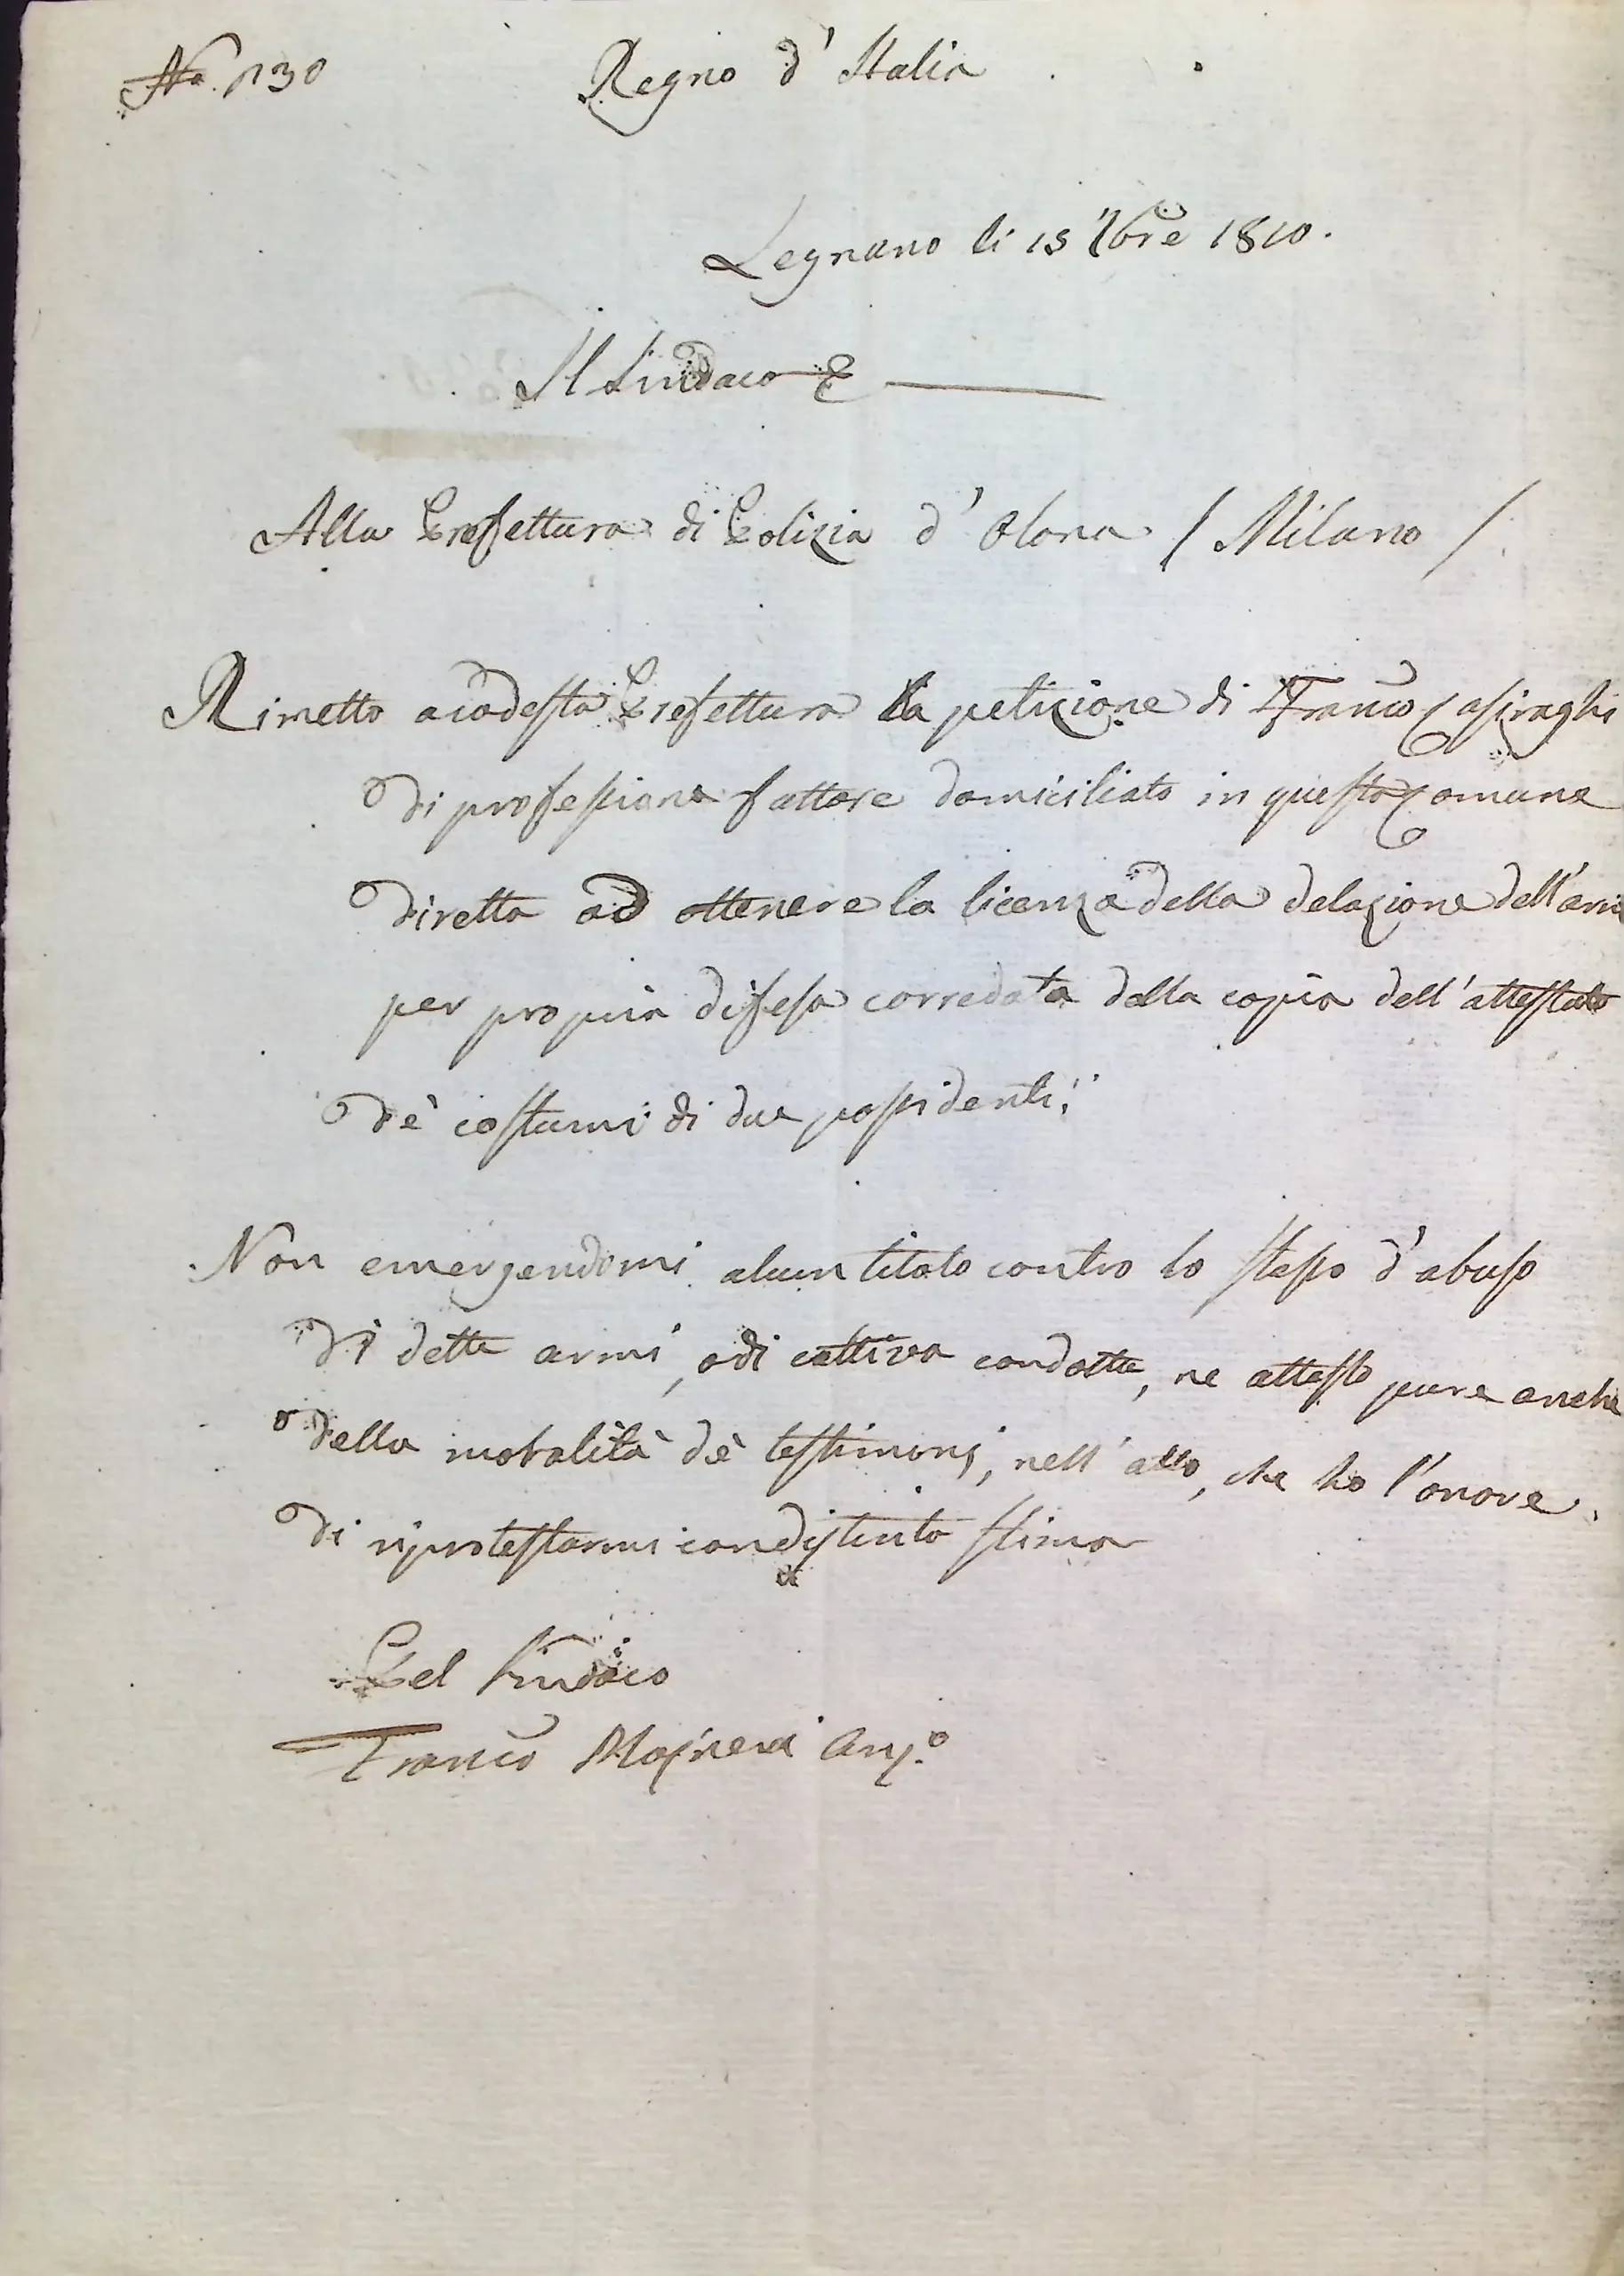 No. 1130
Regno d'Italia
Legnano li 15 9bre 1810.
Il Sindaco
Alla Prefettura di Polizia d'Olona / Milano /
Rimetto a codesta Prefettura la petizione di Franco Casiraghi
di professione fattore domiciliato in questo Comune
diretta ad ottenere la licenza della delazione dell'armi
per propria difesa corredata della copia dell'attestato
de' costumi di due possidenti;
Non emergendomi alcun titolo contro lo stesso d'abuso
di dette armi, o di cattiva condotta, ne attesto pure anche
della moralità de' testimonj, nell'atto, che ho l'onore
di riprotestarmi con distinta stima
Pel Sindaco
Franco